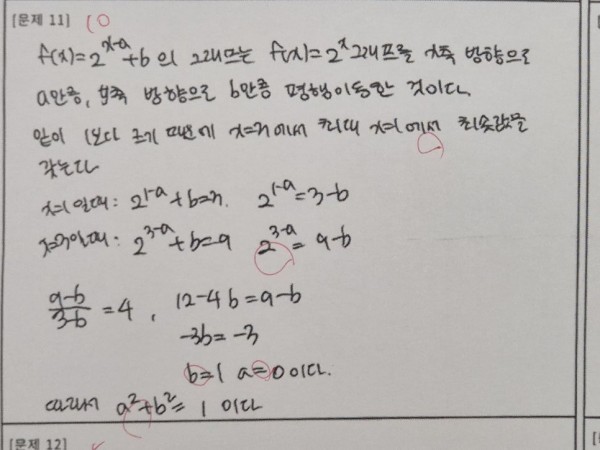 [문제 11] 10
f(x)=2^{x-a}+b 의 그래프는 f(x)=2^x 그래프를 x축 방향으로
a만큼, y축 방향으로 b만큼 평행이동한 것이다.
밑이 1보다 크기 때문에 x=3에서 최대 x=1에서 최솟값을
갖는다
x=1일때: 2^{1-a}+b=3. 2^{1-a}=3-b
x=3일때: 2^{3-a}+b=9 2^{3-a}=9-b
\frac{9-b}{3-b}=4, 12-4b=9-b
-3b=-3
b=1 a=0이다.
따라서 a^2+b^2=1 이다
[문제 12]